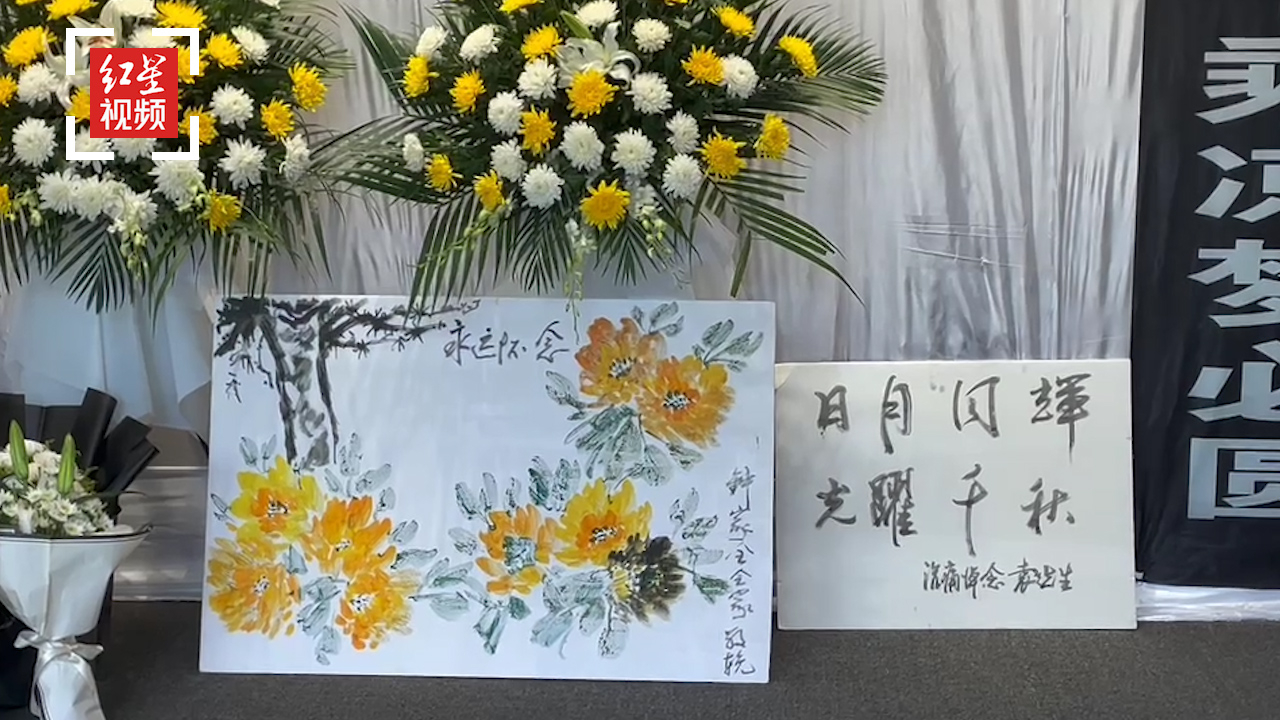 红星
视频
永远怀念
钟家全全家
敬挽
日月同辉
光耀千秋
沉痛悼念袁先生
凉梦必圆